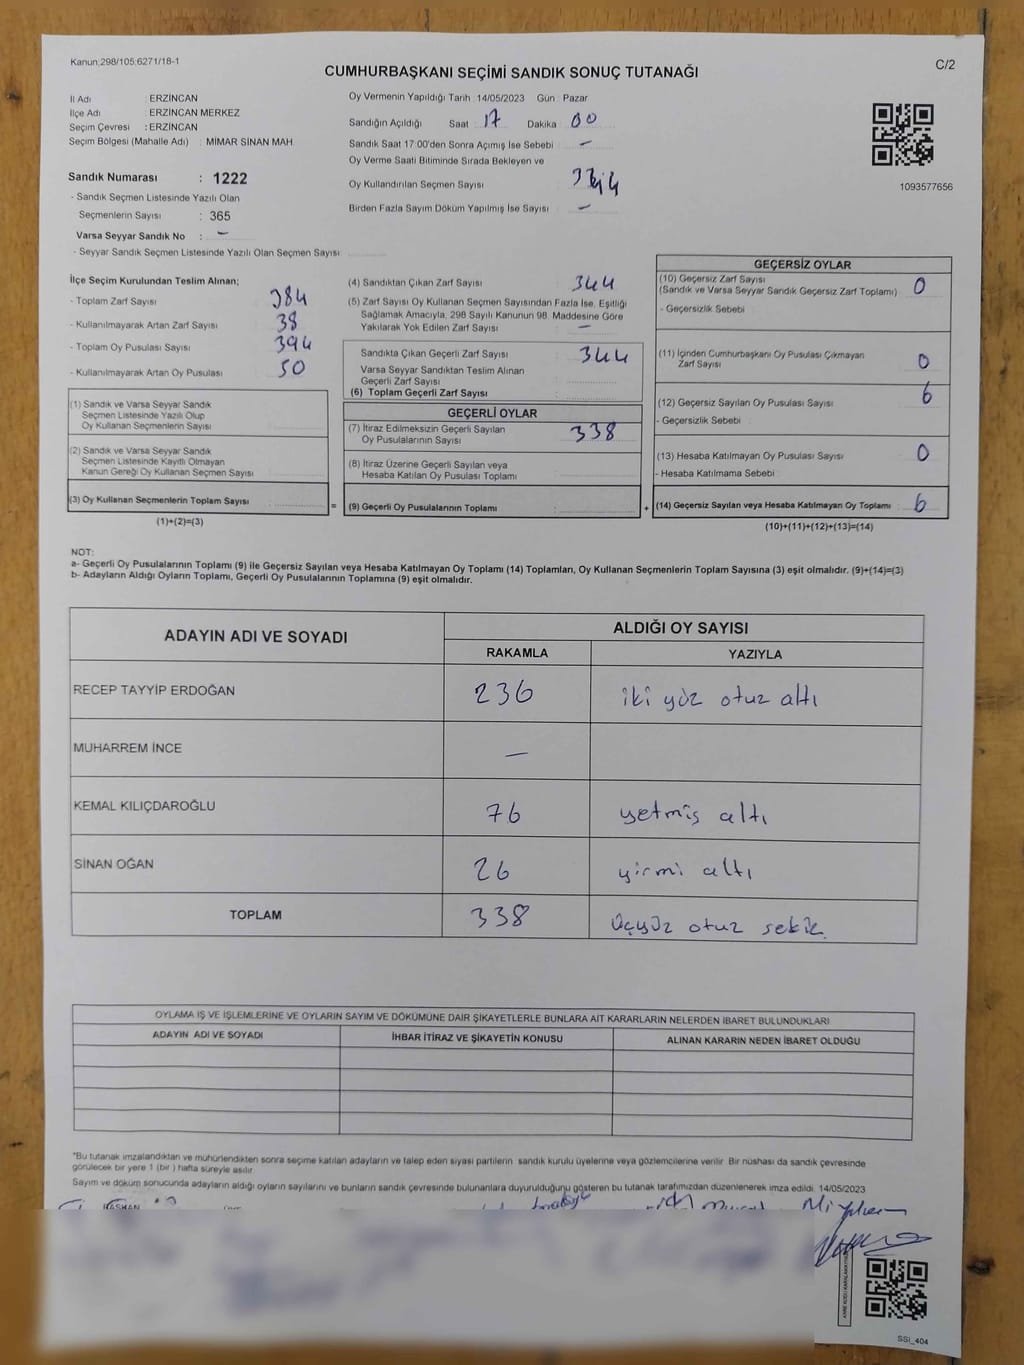 Kanun;298/105;6271/18-1
C/2
CUMHURBAŞKANI SEÇİMİ SANDIK SONUÇ TUTANAĞI
İl Adı : ERZİNCAN
İlçe Adı : ERZİNCAN MERKEZ
Seçim Çevresi : ERZİNCAN
Seçim Bölgesi (Mahalle Adı) : MİMAR SİNAN MAH.
Sandık Numarası : 1222
- Sandık Seçmen Listesinde Yazılı Olan
Seçmenlerin Sayısı : 365
Varsa Seyyar Sandık No : -
- Seyyar Sandık Seçmen Listesinde Yazılı Olan Seçmen Sayısı
Oy Vermenin Yapıldığı Tarih 14/05/2023 Gün Pazar
Sandığın Açıldığı Saat 17 Dakika 00
Sandık Saat 17:00'den Sonra Açımış İse Sebebi -
Oy Verme Saati Bitiminde Sırada Bekleyen ve
Oy Kullandırılan Seçmen Sayısı
Birden Fazla Sayım Döküm Yapılmış İse Sayısı -
1093577656
İlçe Seçim Kurulundan Teslim Alınan;
- Toplam Zarf Sayısı 384
- Kullanılmayarak Artan Zarf Sayısı 38
- Toplam Oy Pusulası Sayısı 394
- Kullanılmayarak Artan Oy Pusulası 50
(1) Sandık ve Varsa Seyyar Sandık
Seçmen Listesinde Yazılı Olup
Oy Kullanan Seçmenlerin Sayısı
(2) Sandık ve Varsa Seyyar Sandık
Seçmen Listesinde Kayıtlı Olmayan
Kanun Gereği Oy Kullanan Seçmen Sayısı
(3) Oy Kullanan Seçmenlerin Toplam Sayısı =
(1)+(2)=(3)
(4) Sandıktan Çıkan Zarf Sayısı 344
(5) Zarf Sayısı Oy Kullanan Seçmen Sayısından Fazla İse, Eşitliği
Sağlamak Amacıyla, 298 Sayılı Kanunun 98. Maddesine Göre
Yakılarak Yok Edilen Zarf Sayısı -
Sandıkta Çıkan Geçerli Zarf Sayısı 344
Varsa Seyyar Sandıktan Teslim Alınan
Geçerli Zarf Sayısı
(6) Toplam Geçerli Zarf Sayısı
GEÇERLİ OYLAR
(7) İtiraz Edilmeksizin Geçerli Sayılan
Oy Pusulalarının Sayısı 338
(8) İtiraz Üzerine Geçerli Sayılan veya
Hesaba Katılan Oy Pusulası Toplamı
(9) Geçerli Oy Pusulalarının Toplamı +
GEÇERSİZ OYLAR
(10) Geçersiz Zarf Sayısı
(Sandık ve Varsa Seyyar Sandık Geçersiz Zarf Toplamı) 0
- Geçersizlik Sebebi
(11) İçinden Cumhurbaşkanı Oy Pusulası Çıkmayan
Zarf Sayısı 0
(12) Geçersiz Sayılan Oy Pusulası Sayısı 6
- Geçersizlik Sebebi
(13) Hesaba Katılmayan Oy Pusulası Sayısı 0
- Hesaba Katılmama Sebebi
(14) Geçersiz Sayılan veya Hesaba Katılmayan Oy Toplamı : 6
(10)+(11)+(12)+(13)=(14)
NOT:
a- Geçerli Oy Pusulalarının Toplamı (9) ile Geçersiz Sayılan veya Hesaba Katılmayan Oy Toplamı (14) Toplamları, Oy Kullanan Seçmenlerin Toplam Sayısına (3) eşit olmalıdır. (9)+(14)=(3)
b- Adayların Aldığı Oyların Toplamı, Geçerli Oy Pusulalarının Toplamına (9) eşit olmalıdır.
ADAYIN ADI VE SOYADI ALDIĞI OY SAYISI
RAKAMLA YAZIYLA
RECEP TAYYİP ERDOĞAN 236 iki yüz otuz altı
MUHARREM İNCE -
KEMAL KILIÇDAROĞLU 76 yetmiş altı
SİNAN OĞAN 26 yirmi altı
TOPLAM 338 üçyüz otuz sekiz
OYLAMA İŞ VE İŞLEMLERİNE VE OYLARIN SAYIM VE DÖKÜMÜNE DAİR ŞİKAYETLERLE BUNLARA AİT KARARLARIN NELERDEN İBARET BULUNDUKLARI
ADAYIN ADI VE SOYADI İHBAR İTİRAZ VE ŞİKAYETİN KONUSU ALINAN KARARIN NEDEN İBARET OLDUĞU
*Bu tutanak imzalandıktan ve mühürlendikten sonra seçime katılan adayların ve talep eden siyasi partilerin sandık kurulu üyelerine veya gözlemcilerine verilir. Bir nüshası da sandık çevresinde
görülecek bir yere 1 (bir ) hafta süreyle asılır
Sayım ve döküm sonucunda adayların aldığı oyların sayılarını ve bunların sandık çevresinde bulunanlara duyurulduğunu gösteren bu tutanak tarafımızdan düzenlenerek imza edildi. 14/05/2023
SSI_404